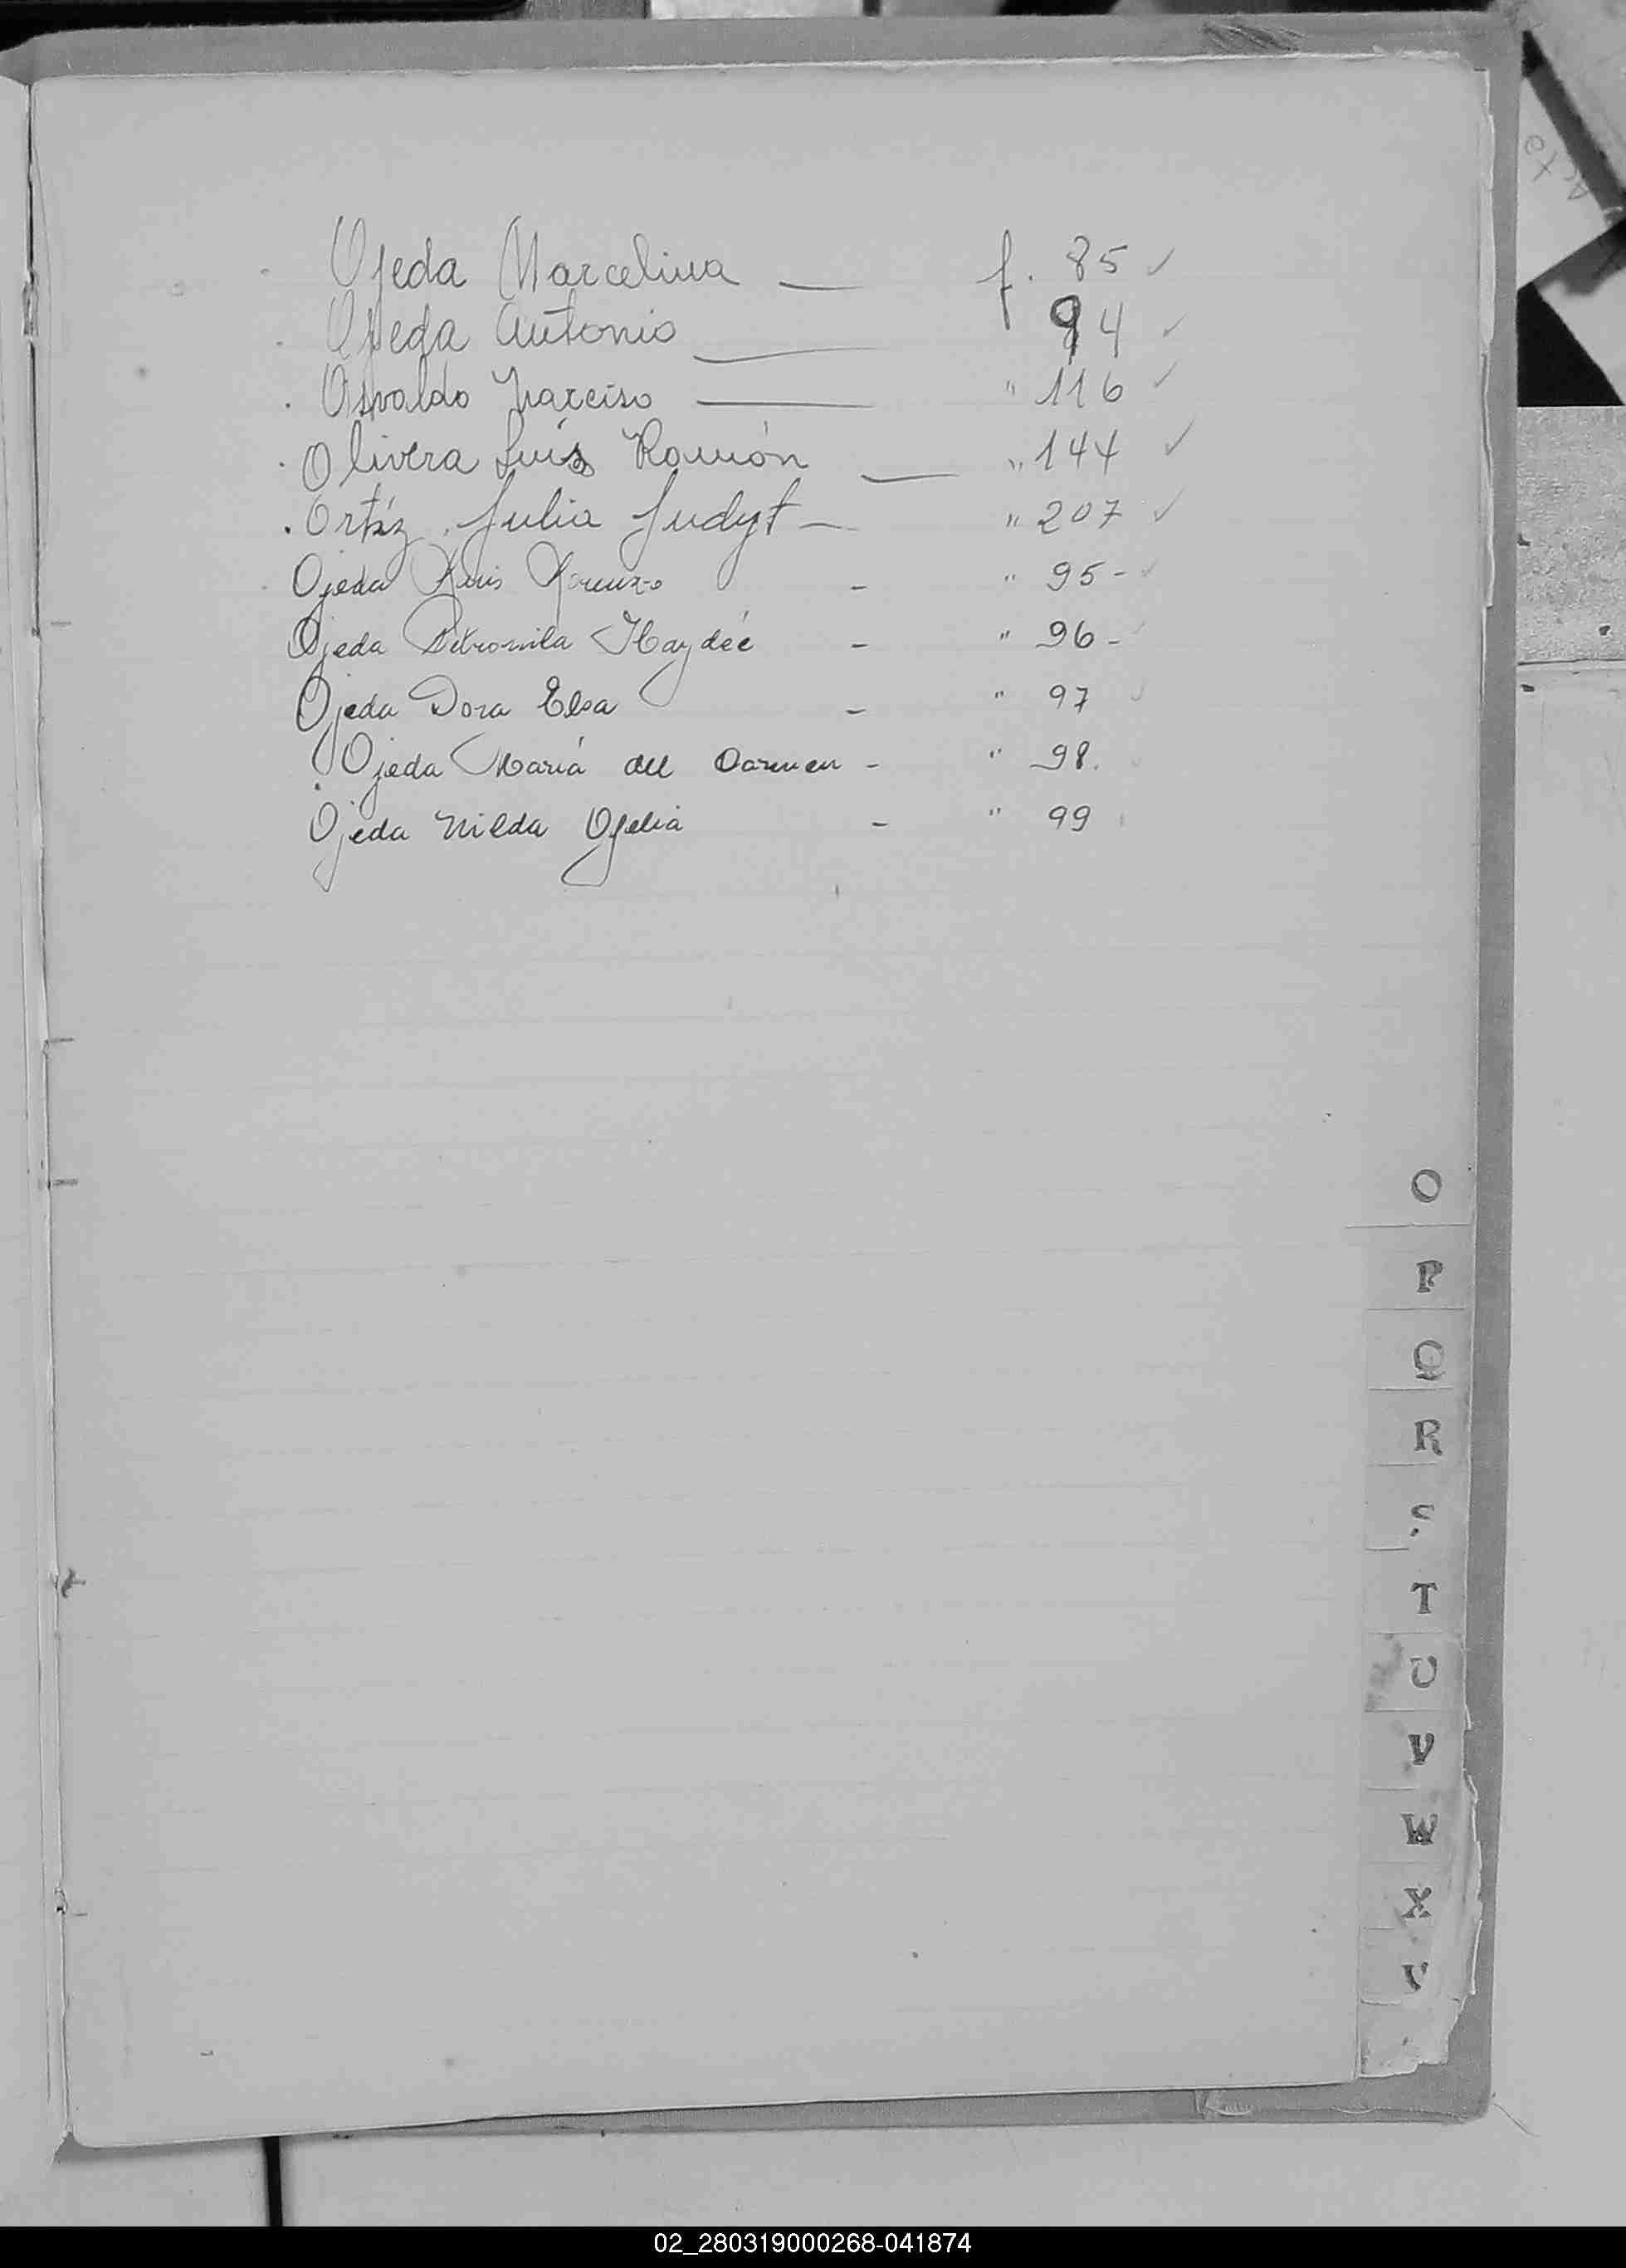 Ojeda Marcelina — f. 85 ✓
Ojeda Antonio — 94 ✓
Osvaldo Narciso — " 116 ✓
Olivera Luis Ramón — " 144 ✓
Ortíz Julia Judyt — " 207 ✓
Ojeda Luis Lorenzo - " 95 - ✓
Ojeda Petronila Haydée - " 96 -
Ojeda Dora Elsa - " 97 ✓
Ojeda María del Carmen - " 98.
Ojeda Nilda Ofelia - " 99
O
P
Q
R
S
T
U
V
W
X
02_280319000268-041874